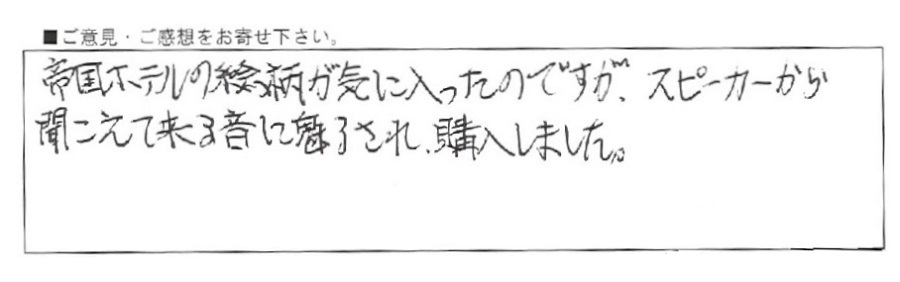 ■ご意見・ご感想をお寄せ下さい。
帝国ホテルの絵柄が気に入ったのですが、スピーカーから
聞こえて来る音に魅了され、購入しました。